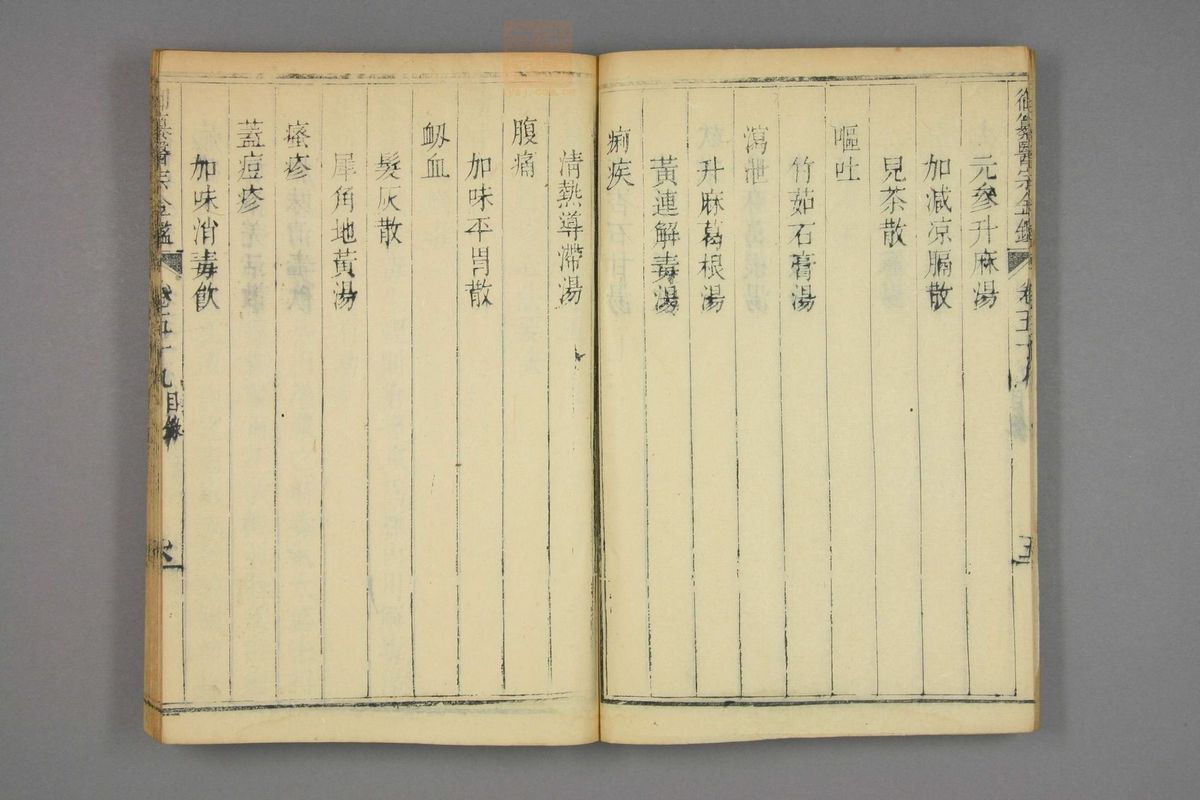 御纂醫宗金鑑 卷五十九 目錄 五
元參升麻湯
加減凉膈散
見茶散
嘔吐
竹茹石膏湯
瀉泄
升麻葛根湯
黃連解毒湯
痢疾
清熱導滯湯
腹痛
加味平胃散
衂血
髮灰散
犀角地黃湯
瘙疹
蓋痘疹
加味消毒飮
御纂醫宗金鑑 卷五十九 目錄 六